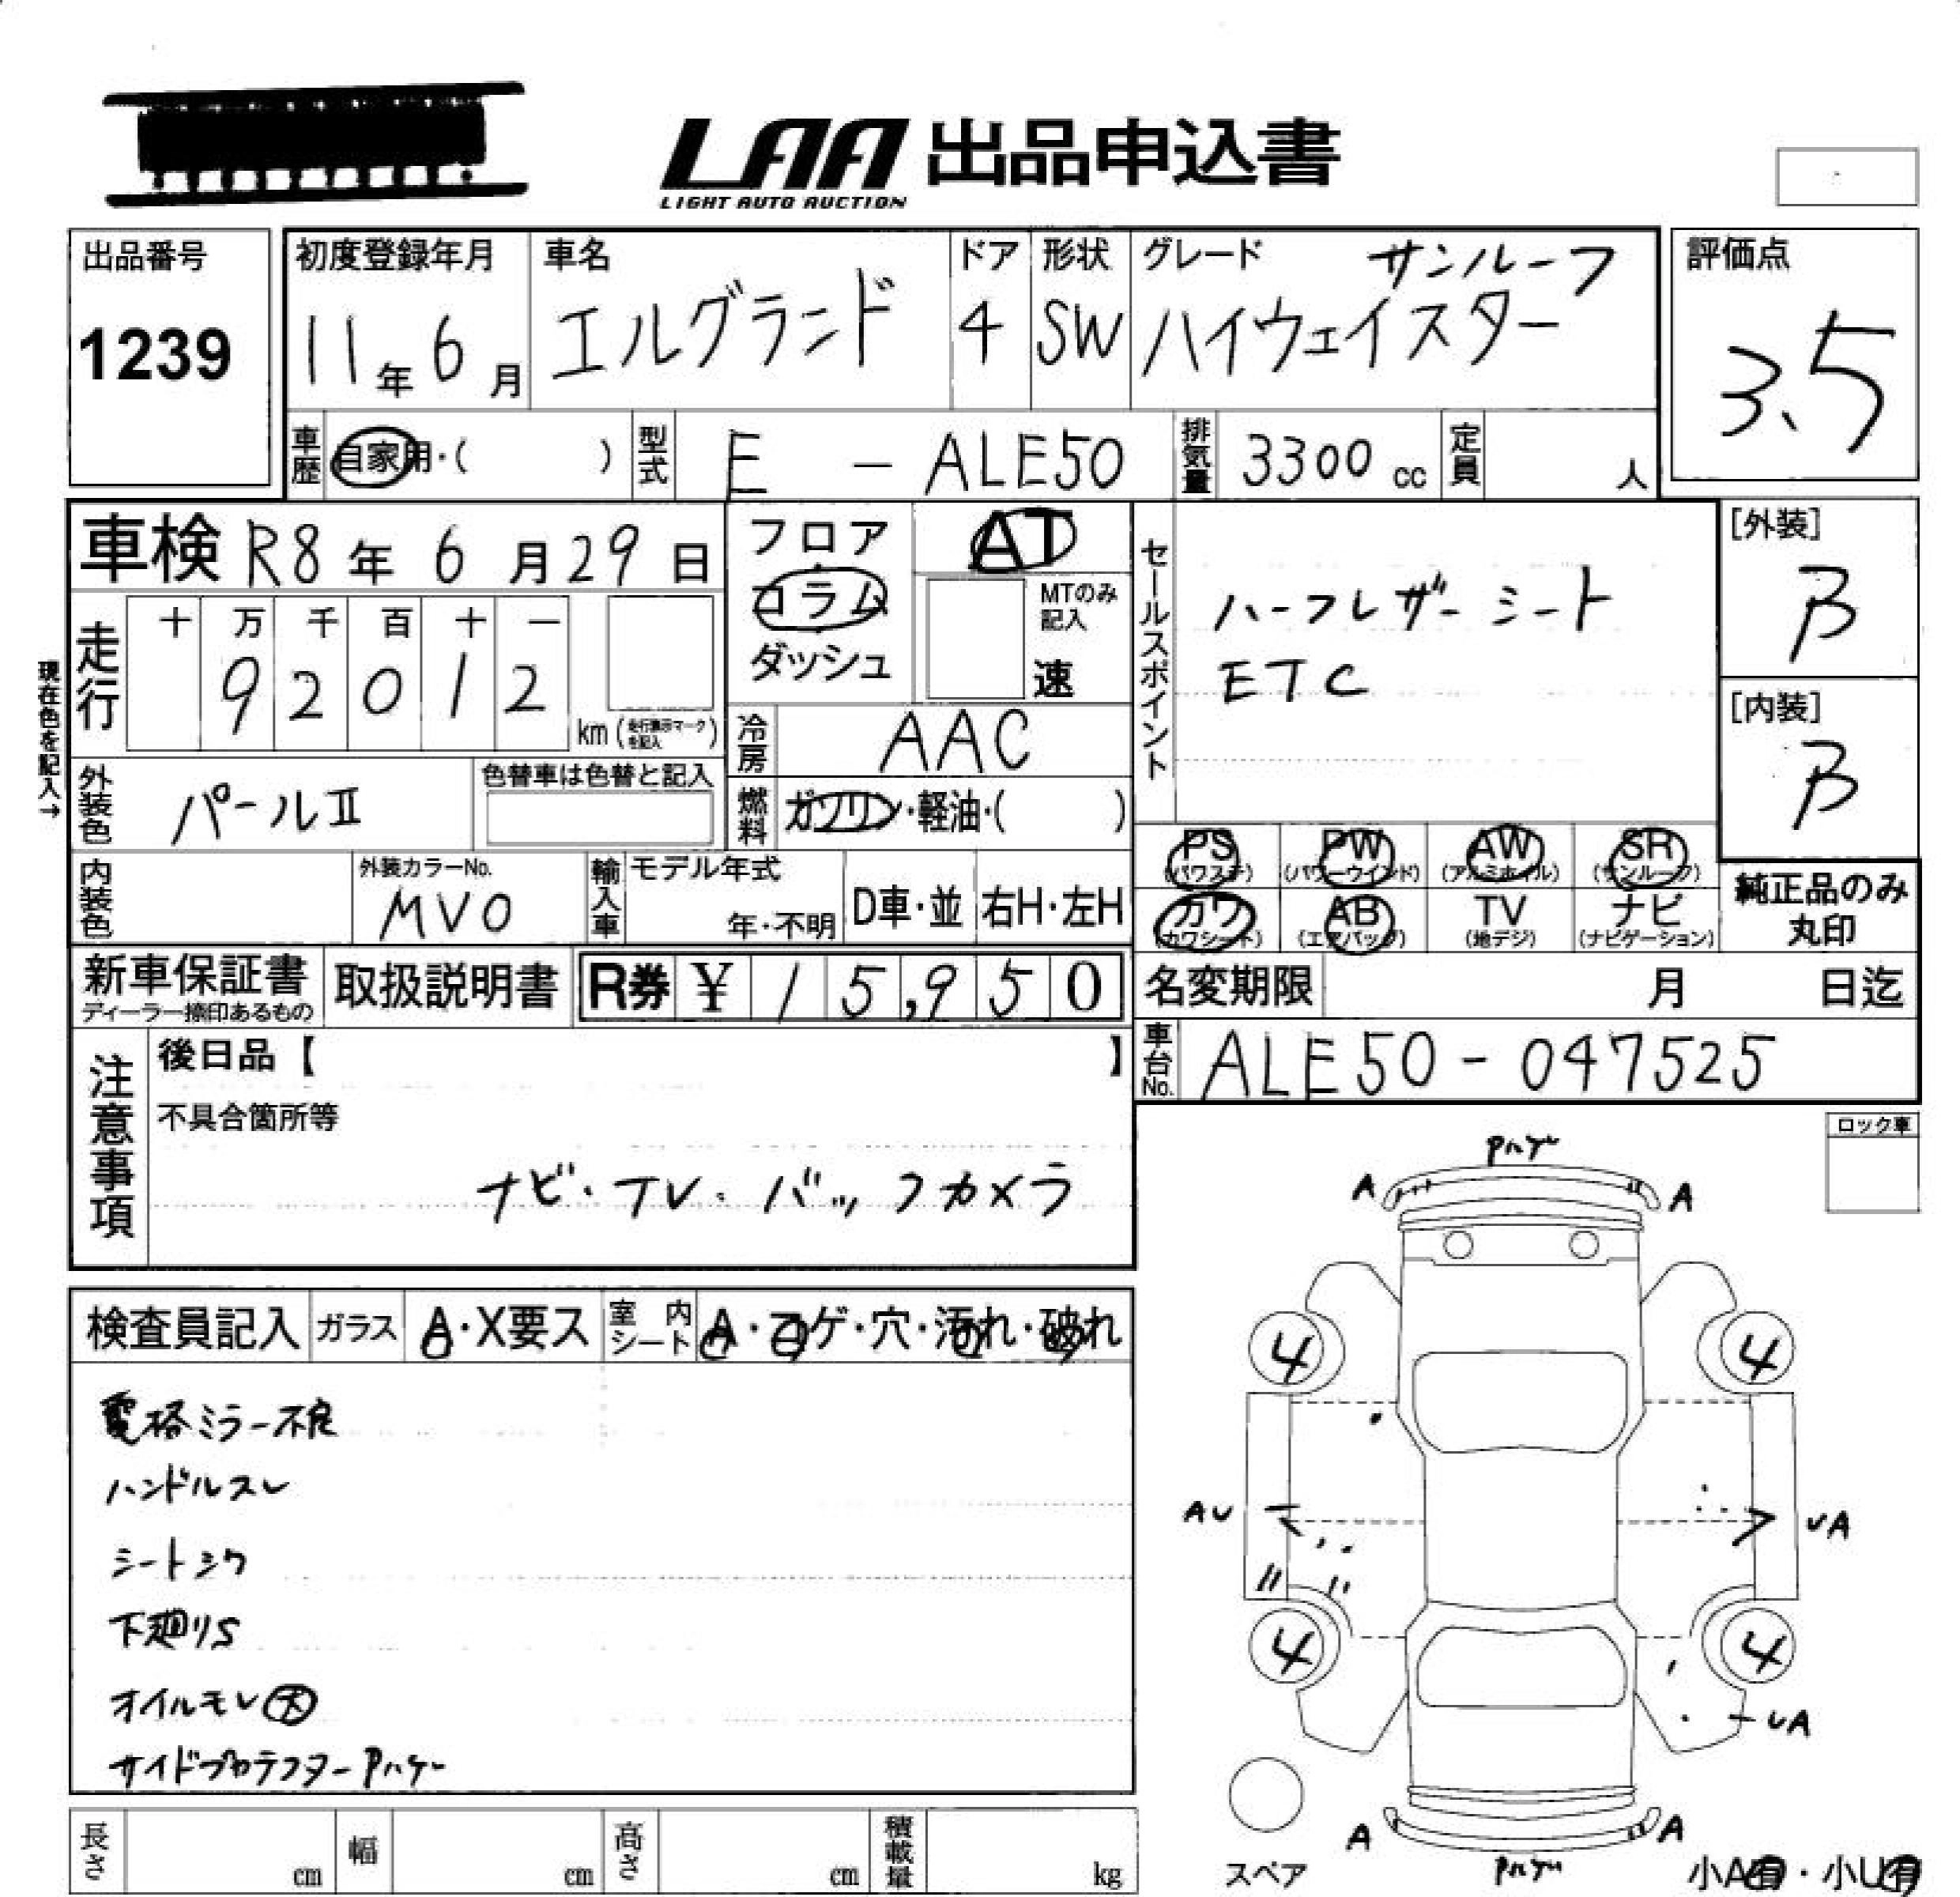 LAA 出品申込書
LIGHT AUTO AUCTION
出品番号
1239
初度登録年月
11年6月
車名
エルグランド
ドア
4
形状
SW
グレード
サンルーフ
ハイウェイスター
評価点
3.5
車歴 自家用・( )
型式 E - ALE50
排気量 3300 cc
定員 人
車検 R8年6月29日
フロア
コラム
ダッシュ
AT
MTのみ記入
速
セールスポイント
ハーフレザーシート
ETC
[外装]
B
[内装]
B
現在色を記入→
走行
十 万 千 百 十 一
9 2 0 1 2
km (走行表示マークを記入)
冷房 AAC
燃料 ガソリン・軽油・( )
外装色 パールⅡ
色替車は色替と記入
内装色
外装カラーNo.
MV0
輸入車
モデル年式
年・不明
D車・並
右H・左H
PS (パワステ)
PW (パワーウインド)
AW (アルミホイル)
SR (サンルーフ)
カワ (カワシート)
AB (エアバッグ)
TV (地デジ)
ナビ (ナビゲーション)
純正品のみ
丸印
新車保証書
ディーラー捺印あるもの
取扱説明書
R券 ¥ 15,950
名変期限 月 日迄
車台No. ALE50-047525
注意事項
後日品【 】
不具合箇所等
ナビ・TV・バックカメラ
ロック車
検査員記入
ガラス A・X要ス
室内シート A・コゲ・穴・汚れ・破れ
電格ミラー不良
ハンドルスレ
シートシワ
下廻りS
オイルモレ大
サイドプロテクター Pハゲ
Pハゲ
A A
4 4
AU UA
4 4
UA
A A
Pハゲ
スペア
小A有・小U有
長さ cm
幅 cm
高さ cm
積載量 kg